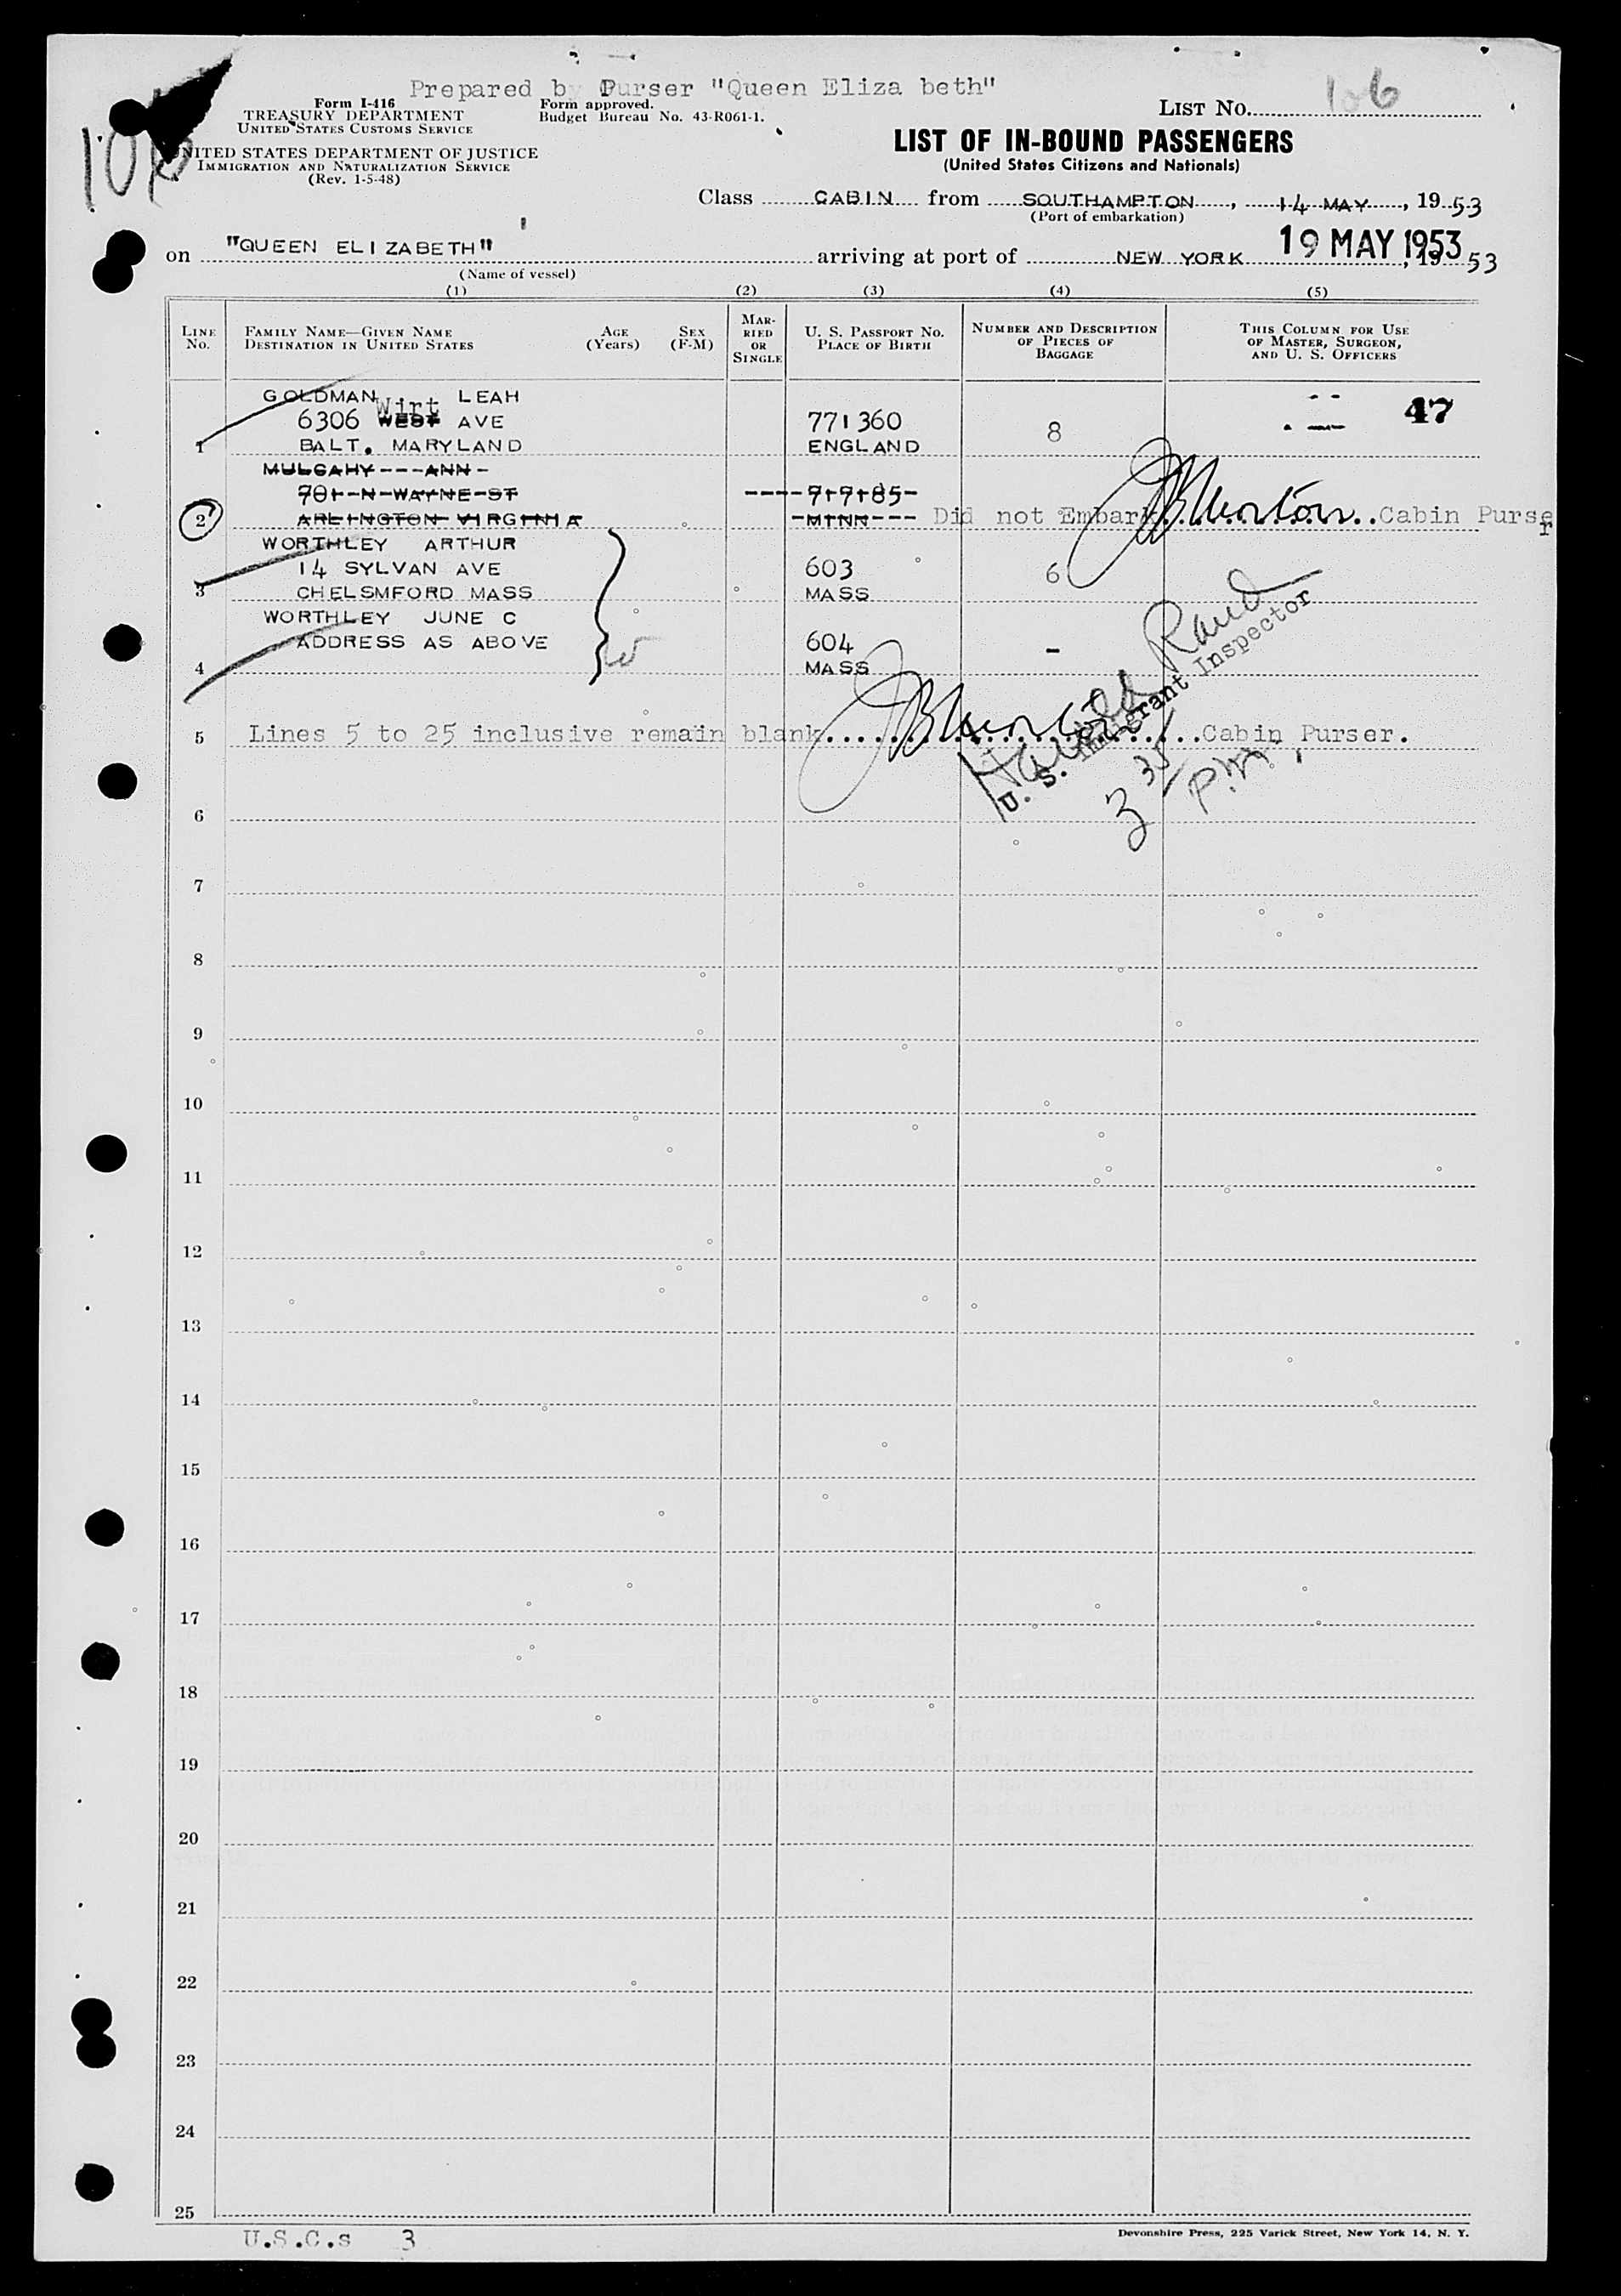 Prepared by Purser "Queen Eliza beth"
Form I-416
TREASURY DEPARTMENT
UNITED STATES CUSTOMS SERVICE
Form approved.
Budget Bureau No. 43-R061-1.
LIST No. 106
106
UNITED STATES DEPARTMENT OF JUSTICE
IMMIGRATION AND NATURALIZATION SERVICE
(Rev. 1-5-48)
LIST OF IN-BOUND PASSENGERS
(United States Citizens and Nationals)
Class CABIN from SOUTHAMPTON, 14 MAY, 1953
(Port of embarkation)
19 MAY 1953
on "QUEEN ELIZABETH" arriving at port of NEW YORK, 1953
(Name of vessel)
(1) (2) (3) (4) (5)
LINE No. FAMILY NAME—GIVEN NAME DESTINATION IN UNITED STATES AGE (Years) SEX (F-M) MARRIED OR SINGLE U. S. PASSPORT No. PLACE OF BIRTH NUMBER AND DESCRIPTION OF PIECES OF BAGGAGE THIS COLUMN FOR USE OF MASTER, SURGEON, AND U. S. OFFICERS
GOLDMAN LEAH 47
6306 WEST Wirt AVE 771360
1 BALT. MARYLAND ENGLAND 8
MULCAHY---ANN-
701-N-WAYNE-ST ----7-7185-
2 ARLINGTON VIRGINIA -MINN--- Did not Embark. Cabin Purser
WORTHLEY ARTHUR
14 SYLVAN AVE 603 6
3 CHELSMFORD MASS MASS
WORTHLEY JUNE C
ADDRESS AS ABOVE 604 -
4 MASS
Harold Rand
U. S. Immigrant Inspector
5 Lines 5 to 25 inclusive remain blank. Cabin Purser.
3 35 P.M.
6
7
8
9
10
11
12
13
14
15
16
17
18
19
20
21
22
23
24
25
U.S.C.s 3
Devonshire Press, 225 Varick Street, New York 14, N. Y.